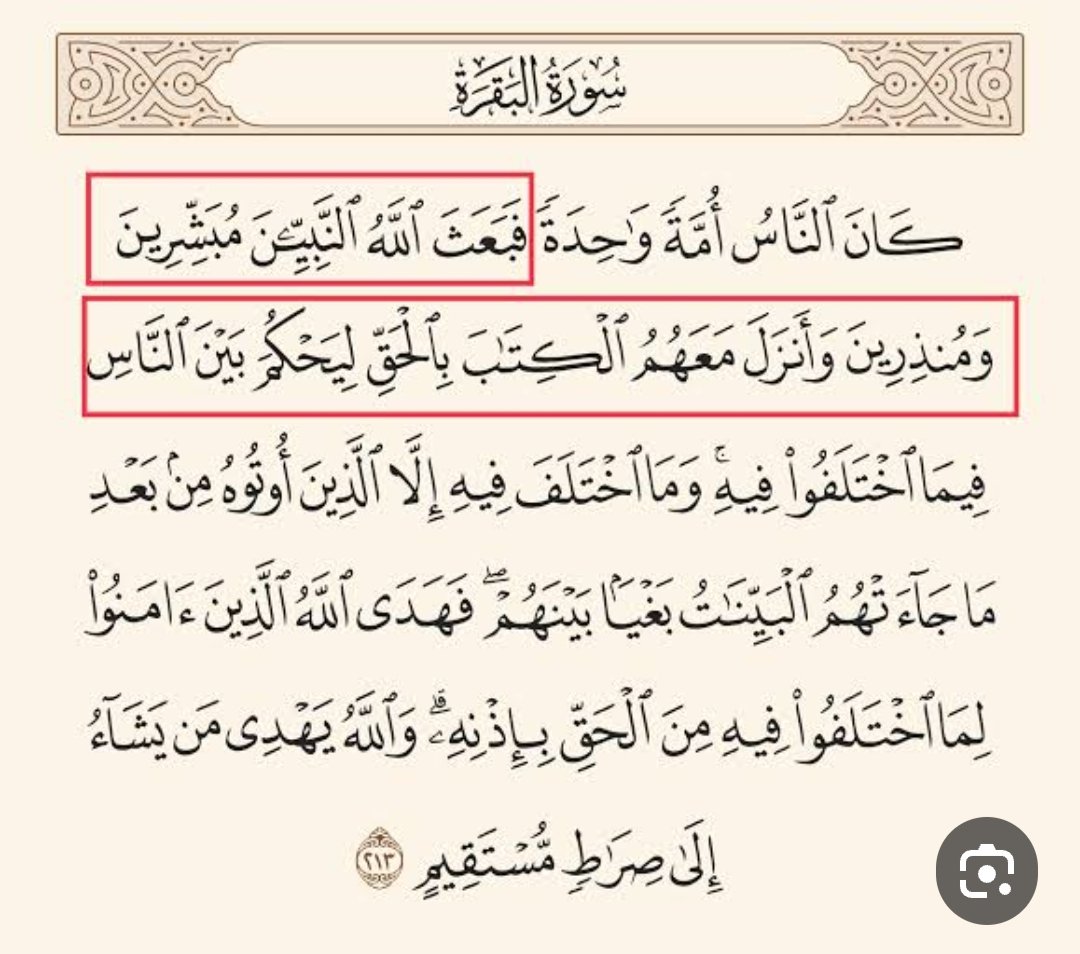 سُورَةُ البَقَرَةِ
كَانَ ٱلنَّاسُ أُمَّةٗ وَٰحِدَةٗ فَبَعَثَ ٱللَّهُ ٱلنَّبِيِّـۧنَ مُبَشِّرِينَ
وَمُنذِرِينَ وَأَنزَلَ مَعَهُمُ ٱلۡكِتَٰبَ بِٱلۡحَقِّ لِيَحۡكُمَ بَيۡنَ ٱلنَّاسِ
فِيمَا ٱخۡتَلَفُواْ فِيهِۚ وَمَا ٱخۡتَلَفَ فِيهِ إِلَّا ٱلَّذِينَ أُوتُوهُ مِنۢ بَعۡدِ
مَا جَآءَتۡهُمُ ٱلۡبَيِّنَٰتُ بَغۡيَۢا بَيۡنَهُمۡۖ فَهَدَى ٱللَّهُ ٱلَّذِينَ ءَامَنُواْ
لِمَا ٱخۡتَلَفُواْ فِيهِ مِنَ ٱلۡحَقِّ بِإِذۡنِهِۦۗ وَٱللَّهُ يَهۡدِي مَن يَشَآءُ
إِلَىٰ صِرَٰطٖ مُّسۡتَقِيمٍ ٢١٣